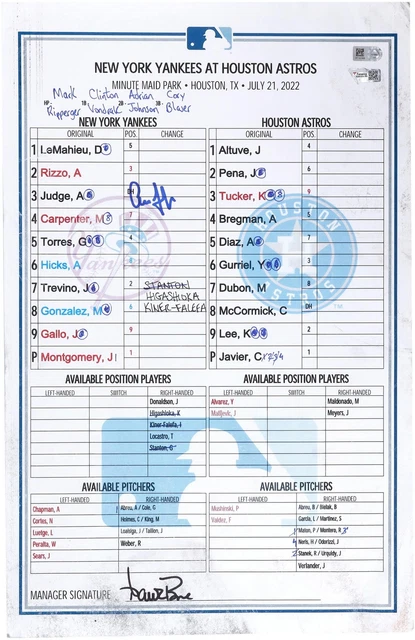 NEW YORK YANKEES AT HOUSTON ASTROS
MINUTE MAID PARK • HOUSTON, TX • JULY 21, 2022
Mark Clinton Adrian Cory
HP- Ripperger 1B Vondrak 2B- Johnson 3B- Blaser
NEW YORK YANKEES HOUSTON ASTROS
ORIGINAL POS. CHANGE ORIGINAL POS. CHANGE
1 LeMahieu, D 5 1 Altuve, J 4
2 Rizzo, A 3 2 Pena, J 6
3 Judge, A DH 3 Tucker, K 9
4 Carpenter, M 4 Bregman, A 5
5 Torres, G 4 5 Diaz, A 7
6 Hicks, A 6 Gurriel, Y
7 Trevino, J 2 STANTON 7 Dubon, M 8
HIGASHIOKA
8 Gonzalez, M 6 KINER-FALEFA 8 McCormick, C DH
9 Gallo, J 9 Lee, K 2
P Montgomery, J 1 P Javier, C 1
AVAILABLE POSITION PLAYERS AVAILABLE POSITION PLAYERS
LEFT-HANDED SWITCH RIGHT-HANDED LEFT-HANDED SWITCH RIGHT-HANDED
Donaldson, J Alvarez, Y Maldonado, M
Higashioka, K Matijevic, J Meyers, J
Kiner-Falefa, I
Locastro, T
Stanton, G
AVAILABLE PITCHERS AVAILABLE PITCHERS
LEFT-HANDED RIGHT-HANDED LEFT-HANDED RIGHT-HANDED
Chapman, A Abreu, A / Cole, G Mushinski, P Abreu, B / Bielak, B
Cortes, N Holmes, C / King, M Valdez, F Garcia, L / Martinez, S
Luetge, L Loaisiga, J / Taillon, J Maton, P / Montero, R
Peralta, W Weber, R Neris, H / Odorizzi, J
Sears, J Stanek, R / Urquidy, J
Verlander, J
MANAGER SIGNATURE